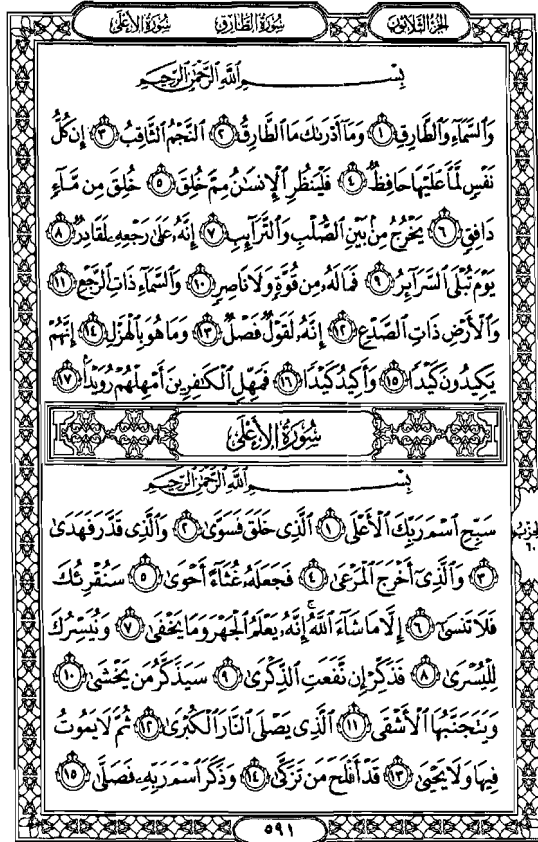 سُورَةُ الأَعْلَى سُورَةُ الطَّارِقِ الجُزْءُ الثَّلَاثُونَ
بِسْمِ اللَّهِ الرَّحْمَٰنِ الرَّحِيمِ
وَالسَّمَاءِ وَالطَّارِقِ ١ وَمَا أَدْرَىٰكَ مَا الطَّارِقُ ٢ النَّجْمُ الثَّاقِبُ ٣ إِن كُلُّ
نَفْسٍ لَّمَّا عَلَيْهَا حَافِظٌ ٤ فَلْيَنظُرِ الْإِنسَٰنُ مِمَّ خُلِقَ ٥ خُلِقَ مِن مَّاءٍ
دَافِقٍ ٦ يَخْرُجُ مِنۢ بَيْنِ الصُّلْبِ وَالتَّرَائِبِ ٧ إِنَّهُۥ عَلَىٰ رَجْعِهِۦ لَقَادِرٌ ٨
يَوْمَ تُبْلَى السَّرَائِرُ ٩ فَمَا لَهُۥ مِن قُوَّةٍ وَلَا نَاصِرٍ ١٠ وَالسَّمَاءِ ذَاتِ الرَّجْعِ ١١
وَالْأَرْضِ ذَاتِ الصَّدْعِ ١٢ إِنَّهُۥ لَقَوْلٌ فَصْلٌ ١٣ وَمَا هُوَ بِالْهَزْلِ ١٤ إِنَّهُمْ
يَكِيدُونَ كَيْدًا ١٥ وَأَكِيدُ كَيْدًا ١٦ فَمَهِّلِ الْكَٰفِرِينَ أَمْهِلْهُمْ رُوَيْدًۢا ١٧
سُورَةُ الأَعْلَى
بِسْمِ اللَّهِ الرَّحْمَٰنِ الرَّحِيمِ
سَبِّحِ اسْمَ رَبِّكَ الْأَعْلَى ١ الَّذِي خَلَقَ فَسَوَّىٰ ٢ وَالَّذِي قَدَّرَ فَهَدَىٰ
٣ وَالَّذِي أَخْرَجَ الْمَرْعَىٰ ٤ فَجَعَلَهُۥ غُثَاءً أَحْوَىٰ ٥ سَنُقْرِئُكَ
فَلَا تَنسَىٰ ٦ إِلَّا مَا شَاءَ اللَّهُ ۚ إِنَّهُۥ يَعْلَمُ الْجَهْرَ وَمَا يَخْفَىٰ ٧ وَنُيَسِّرُكَ
لِلْيُسْرَىٰ ٨ فَذَكِّرْ إِن نَّفَعَتِ الذِّكْرَىٰ ٩ سَيَذَّكَّرُ مَن يَخْشَىٰ ١٠
وَيَتَجَنَّبُهَا الْأَشْقَى ١١ الَّذِي يَصْلَى النَّارَ الْكُبْرَىٰ ١٢ ثُمَّ لَا يَمُوتُ
فِيهَا وَلَا يَحْيَىٰ ١٣ قَدْ أَفْلَحَ مَن تَزَكَّىٰ ١٤ وَذَكَرَ اسْمَ رَبِّهِۦ فَصَلَّىٰ ١٥
الحِزْبُ
٦٠
٥٩١